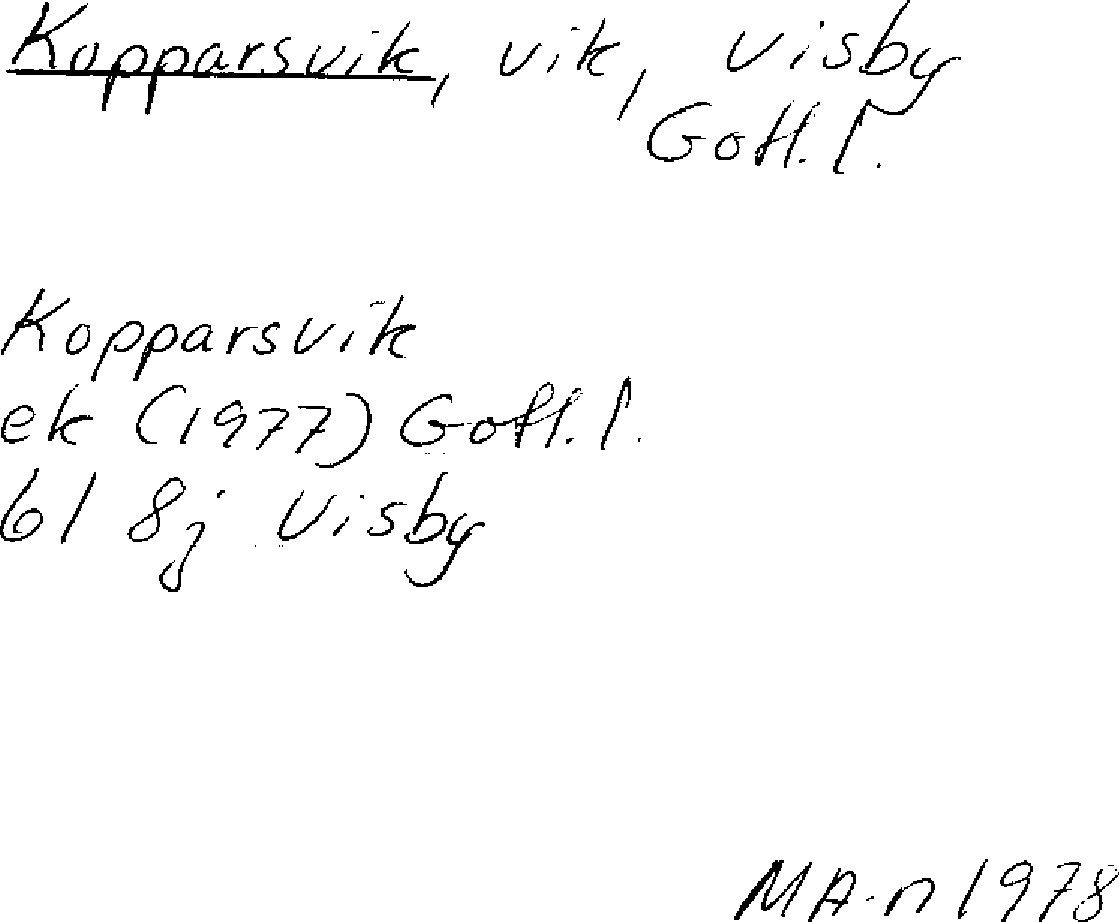 Kopparsvik, vik, Visby
Gotl. l.
Kopparsvik
ek (1977) Gotl. l.
6I 8j Visby
MA-n 1978